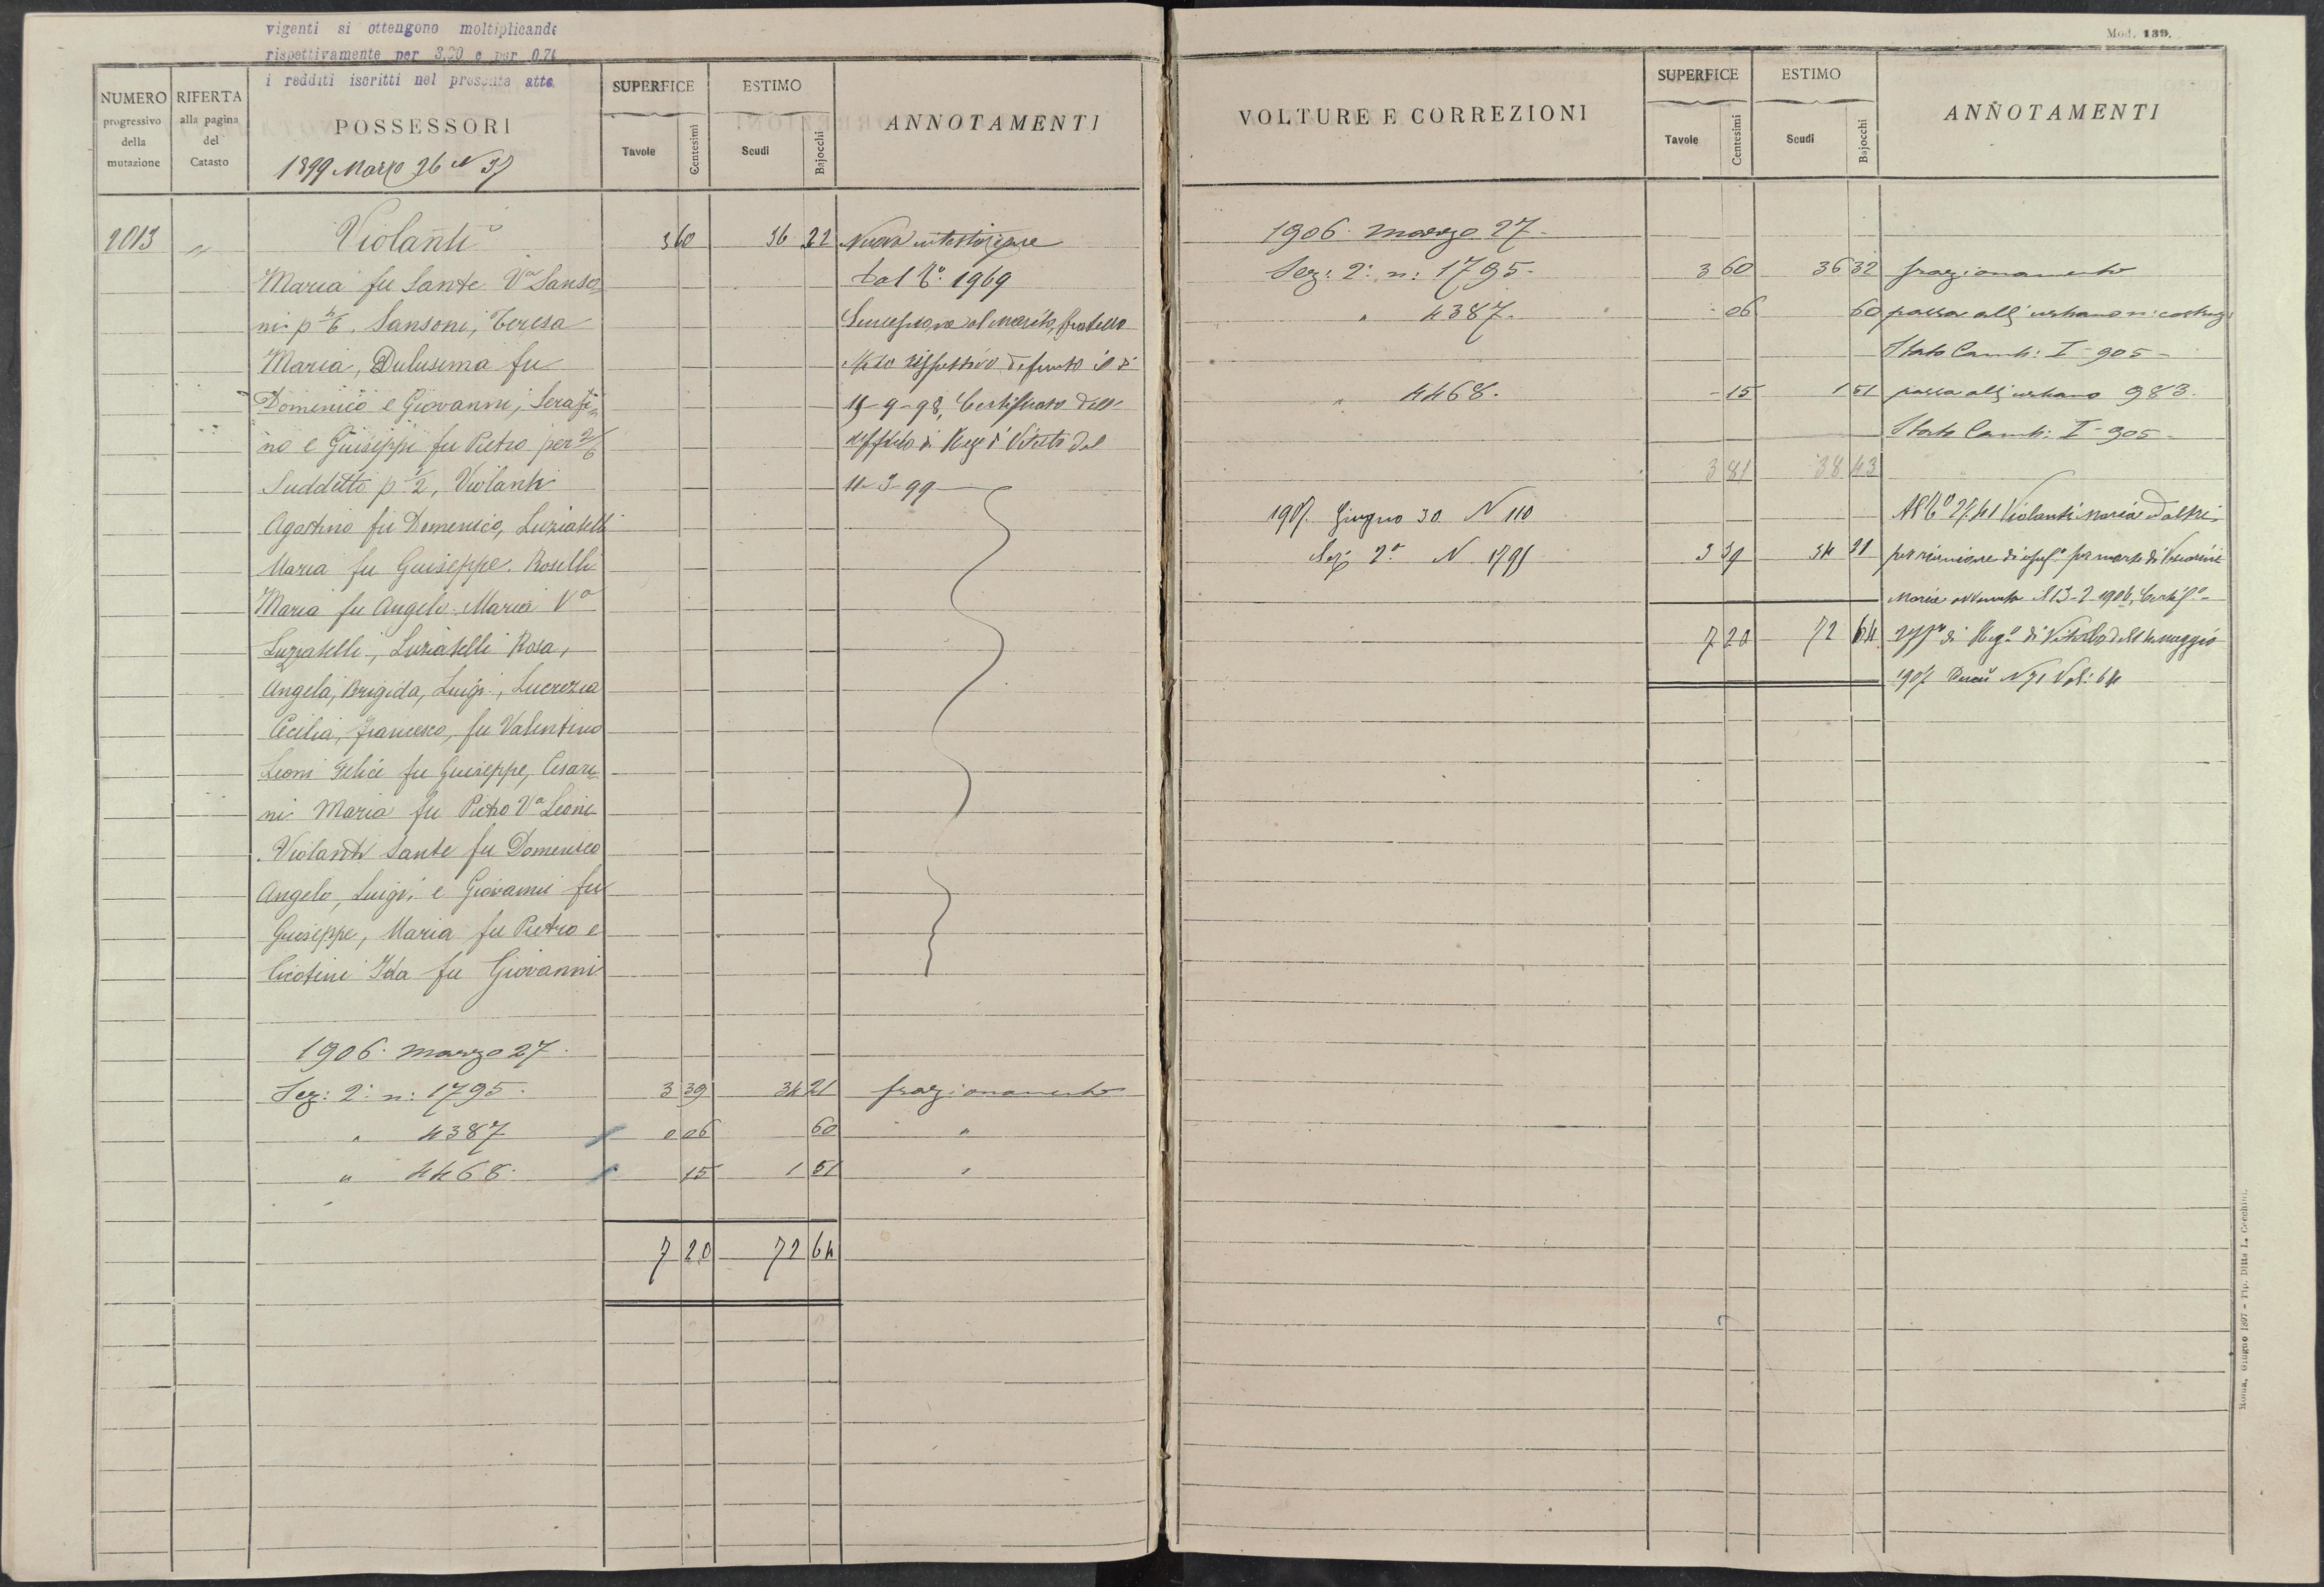 vigenti si ottengono moltiplicando
rispettivamente per 3,20 e per 0,74
i redditi iscritti nel presente atto
NUMERO
progressivo
della
mutazione
RIFERTA
alla pagina
del
Catasto
POSSESSORI
1899 Marzo 26 N 37
SUPERFICE
Tavole
Centesimi
ESTIMO
Scudi
Bajocchi
ANNOTAMENTI
2013 " Violanti 3 60 36 32 Nuova intestazione
Maria fu Sante Va Sanso= dal To 1969
ni p 4/6, Sansoni, Teresa Successione del marito, fratello
Maria, Dulusima fu
Domenico e Giovanni, Serafi= 11-9-98, Certificato dell'
no e Giuseppe fu Pietro per 2/6 ufficio di Reg di Viterbo del
Suddetto p 1/2, Violanti 11-3-99
Agostino fu Domenico, Luziatelli
Maria fu Giuseppe. Roselli
Maria fu Angelo Maria Va
Luziatelli, Luziatelli Rosa,
Angela, Brigida, Luigi, Lucrezia
Cecilia, Francesco, fu Valentino
Leoni Felice fu Giuseppe, Cesari=
ni Maria fu Pietro Va Leoni
Violanti Sante fu Domenico
Angelo, Luigi e Giovanni fu
Giuseppe, Maria fu Pietro e
Cicotini Ida fu Giovanni
1906. marzo 27.
Sez: 2: n: 1795. 3 39 34 21 frazionamento
" 4387 0 06 60 "
" 4468. 15 1 51 "
7 20 72 64
Mod. 139.
VOLTURE E CORREZIONI
SUPERFICE
Tavole
Centesimi
ESTIMO
Scudi
Bajocchi
ANNOTAMENTI
1906. marzo 27.
Sez: 2: n: 1795. 3 60 36 32 frazionamento
" 4387. - 06 60 passa all'urbano n:
Stato Camb: I - 905 -
" 4468. - 15 1 51 passa all'urbano 983.
Stato Camb: I - 905 -
3 81 38 43
1907. Giugno 30 N 110 Al To 2741 Violanti Maria ed altri,
Sez 2a N 1795 3 39 34 21 per riunione di usufo per morte di Cesarini
Maria avvenuta il 13-2-1906, Certifo
7 20 72 64 uffo di Rego di Viterbo del maggio
1907 N 71 Vol: 64
Roma, Giugno 1897 - Tip. Ditta L. Cecchini.